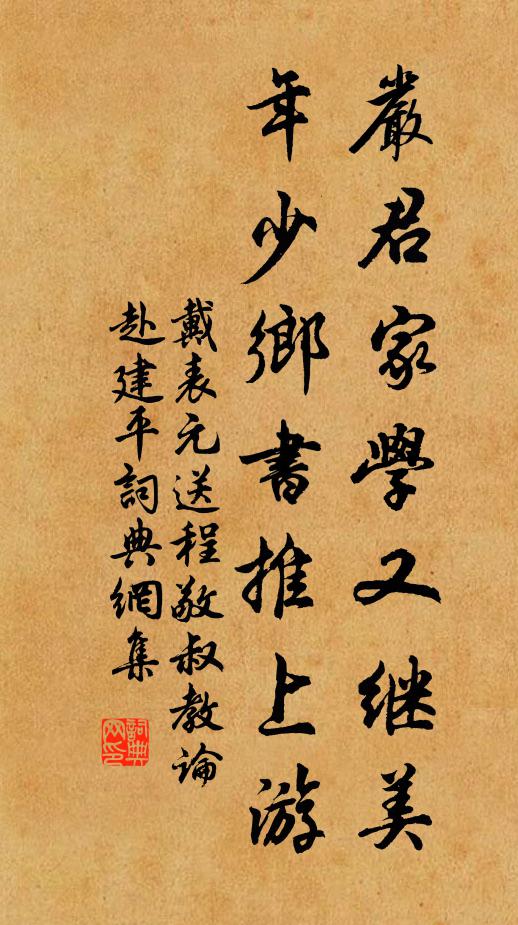 嚴君家學又继美
年少鄉書推上游
戴表元送程敬叔教論
赴建平詞典網集
詞典網印